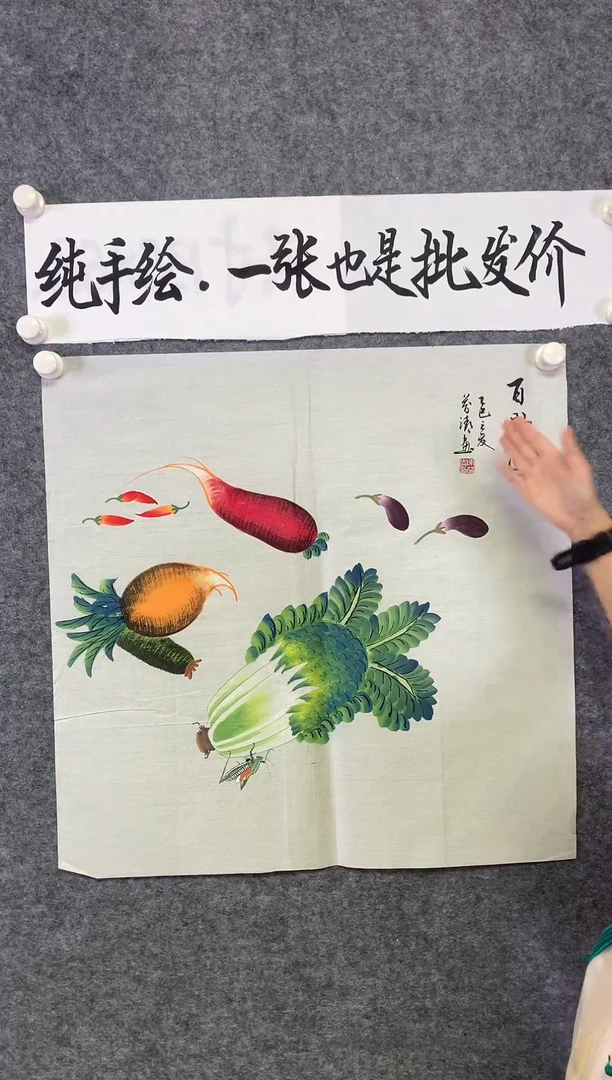 纯手绘.一张也是批发价
百
乙巳之夏